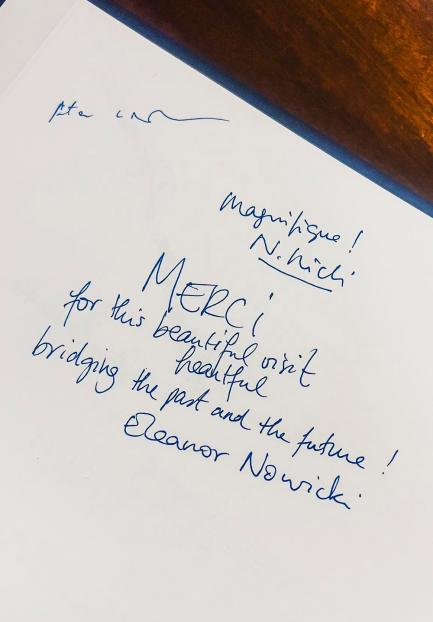 Magnifique!
MERCI
for this beautiful visit
heartful
bridging the past and the future!
Eleanor Nowicki